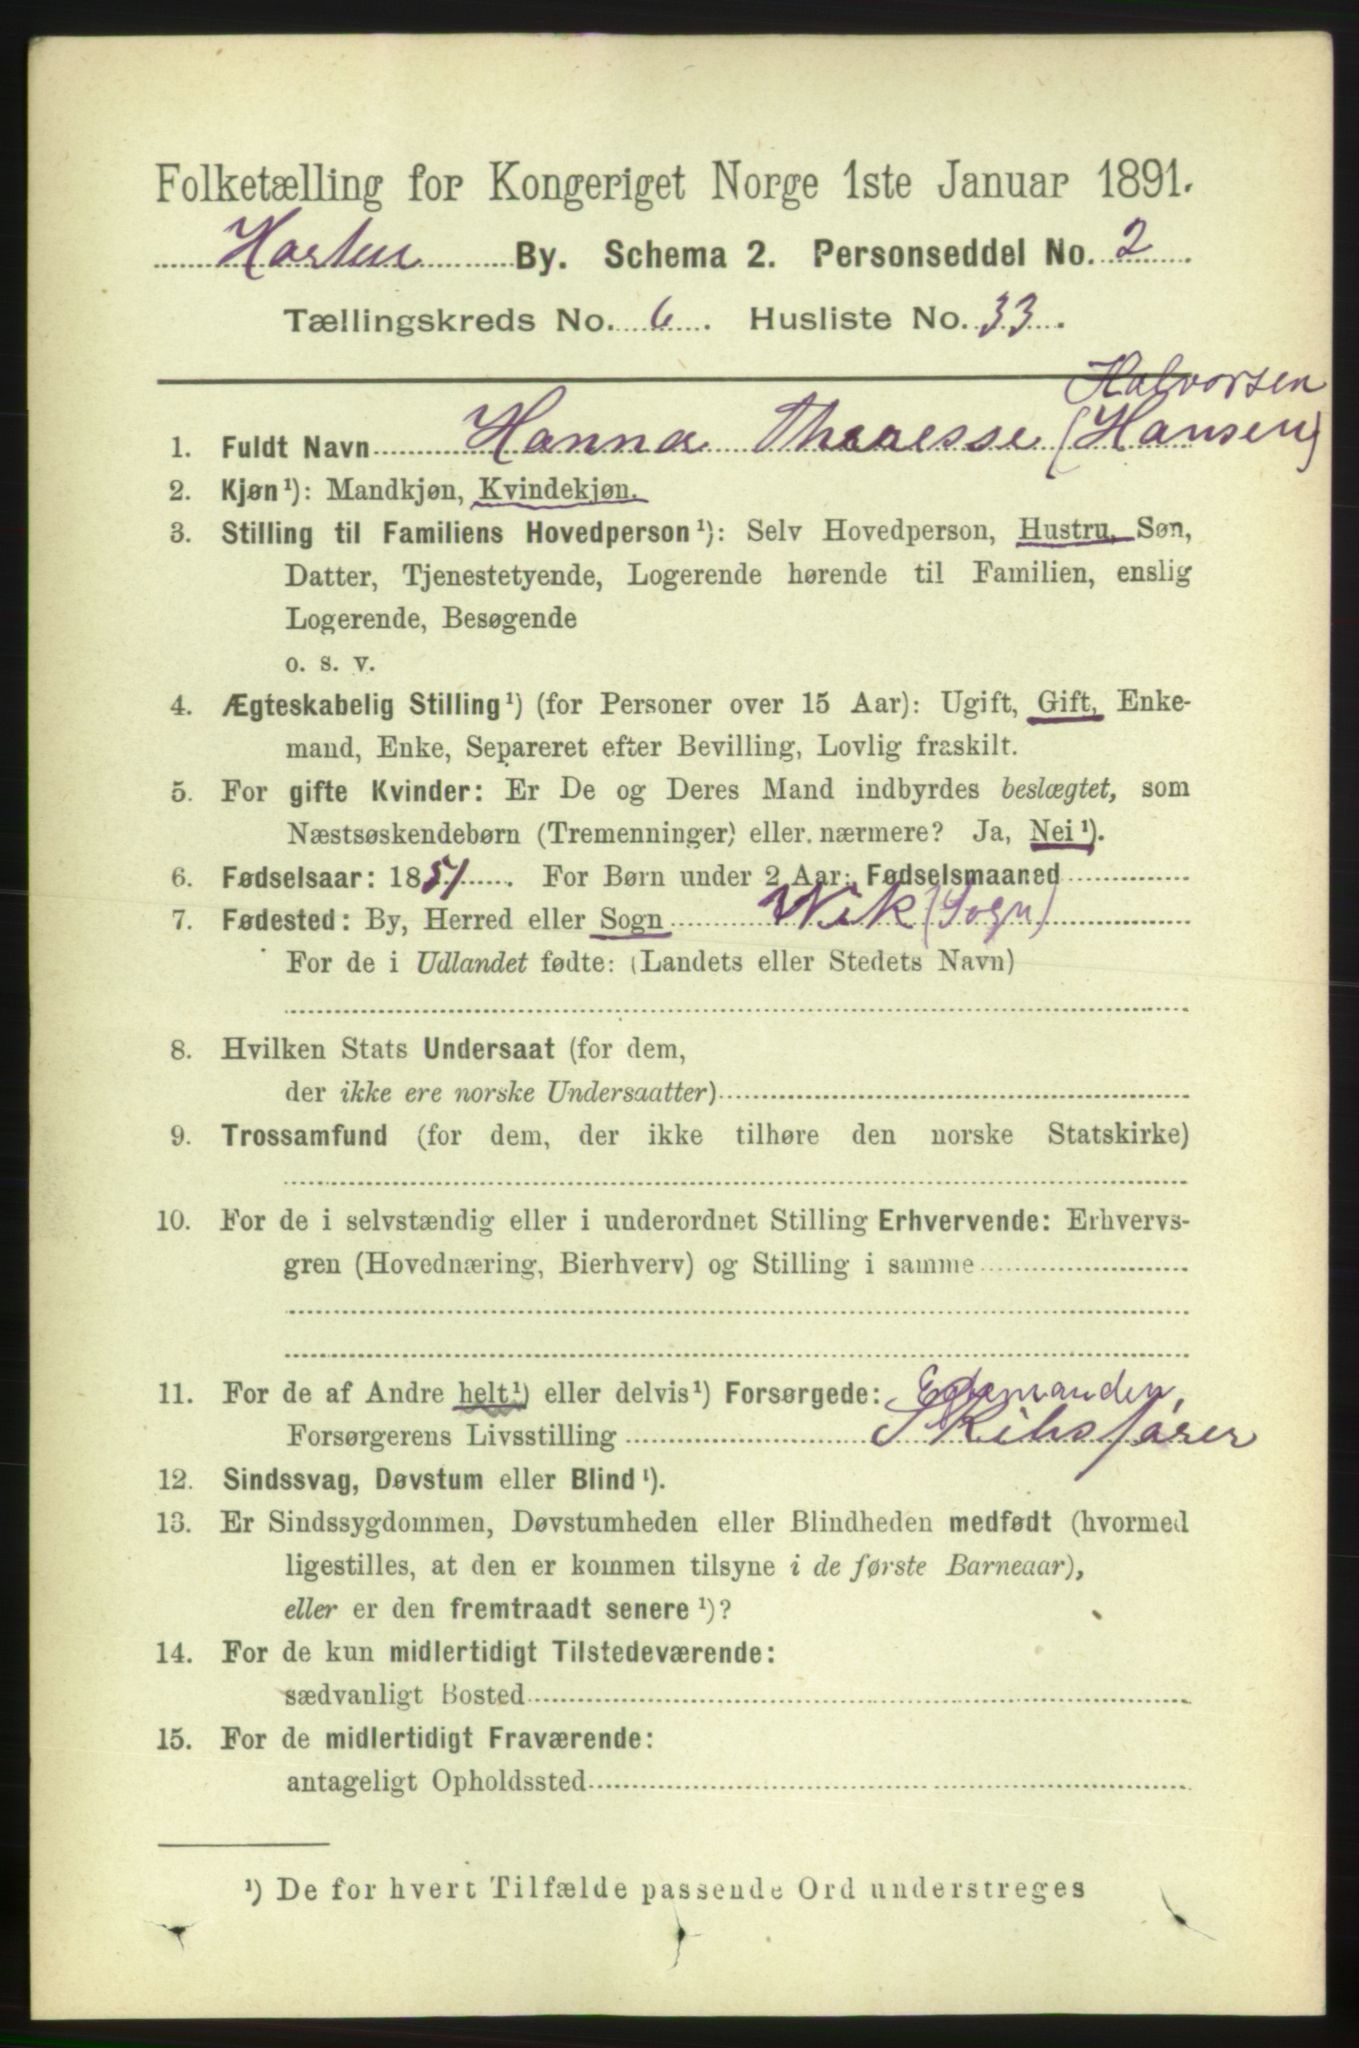 Folketælling for Kongeriget Norge 1ste Januar 1891.
Horten By. Schema 2. Personseddel No. 2
Tællingskreds No. 6. Husliste No. 33.
Halvorsen
1. Fuldt Navn Hanna Tharesse (Hansen)
2. Kjøn¹): Mandkjøn, Kvindekjøn.
3. Stilling til Familiens Hovedperson¹): Selv Hovedperson, Hustru, Søn,
Datter, Tjenestetyende, Logerende hørende til Familien, enslig
Logerende, Besøgende
o. s. v.
4. Ægteskabelig Stilling¹) (for Personer over 15 Aar): Ugift, Gift, Enke-
mand, Enke, Separeret efter Bevilling, Lovlig fraskilt.
5. For gifte Kvinder: Er De og Deres Mand indbyrdes beslægtet, som
Næstsøskendebørn (Tremenninger) eller nærmere? Ja, Nei¹).
6. Fødselsaar: 1851. For Børn under 2 Aar: Fødselsmaaned
7. Fødested: By, Herred eller Sogn Wik (Sogn)
For de i Udlandet fødte: (Landets eller Stedets Navn)
8. Hvilken Stats Undersaat (for dem,
der ikke ere norske Undersaatter)
9. Trossamfund (for dem, der ikke tilhøre den norske Statskirke)
10. For de i selvstændig eller i underordnet Stilling Erhvervende: Erhvervs-
gren (Hovednæring, Bierhverv) og Stilling i samme
11. For de af Andre helt¹) eller delvis¹) Forsørgede:
Forsørgerens Livsstilling Skibsfører
12. Sindssvag, Døvstum eller Blind¹).
13. Er Sindssygdommen, Døvstumheden eller Blindheden medfødt (hvormed
ligestilles, at den er kommen tilsyne i de første Barneaar),
eller er den fremtraadt senere¹)?
14. For de kun midlertidigt Tilstedeværende:
sædvanligt Bosted
15. For de midlertidigt Fraværende:
antageligt Opholdssted
¹) De for hvert Tilfælde passende Ord understreges